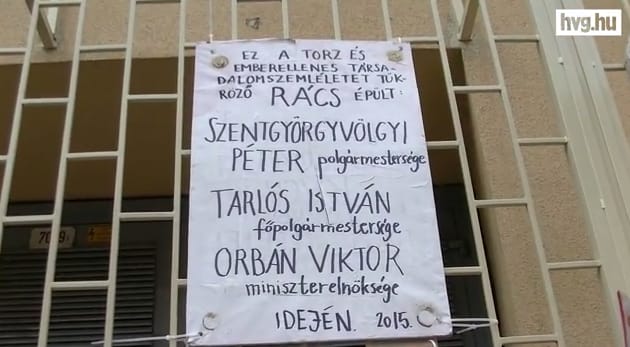 hvg.hu
EZ A TORZ ÉS
EMBERELLENES TÁRSA-
DALOMSZEMLÉLETET TÜK-
RÖZŐ RÁCS ÉPÜLT:
SZENTGYÖRGYVÖLGYI
PÉTER polgármestersége
TARLÓS ISTVÁN
főpolgármestersége
ORBÁN VIKTOR
miniszterelnöksége
IDEJÉN. 2015.